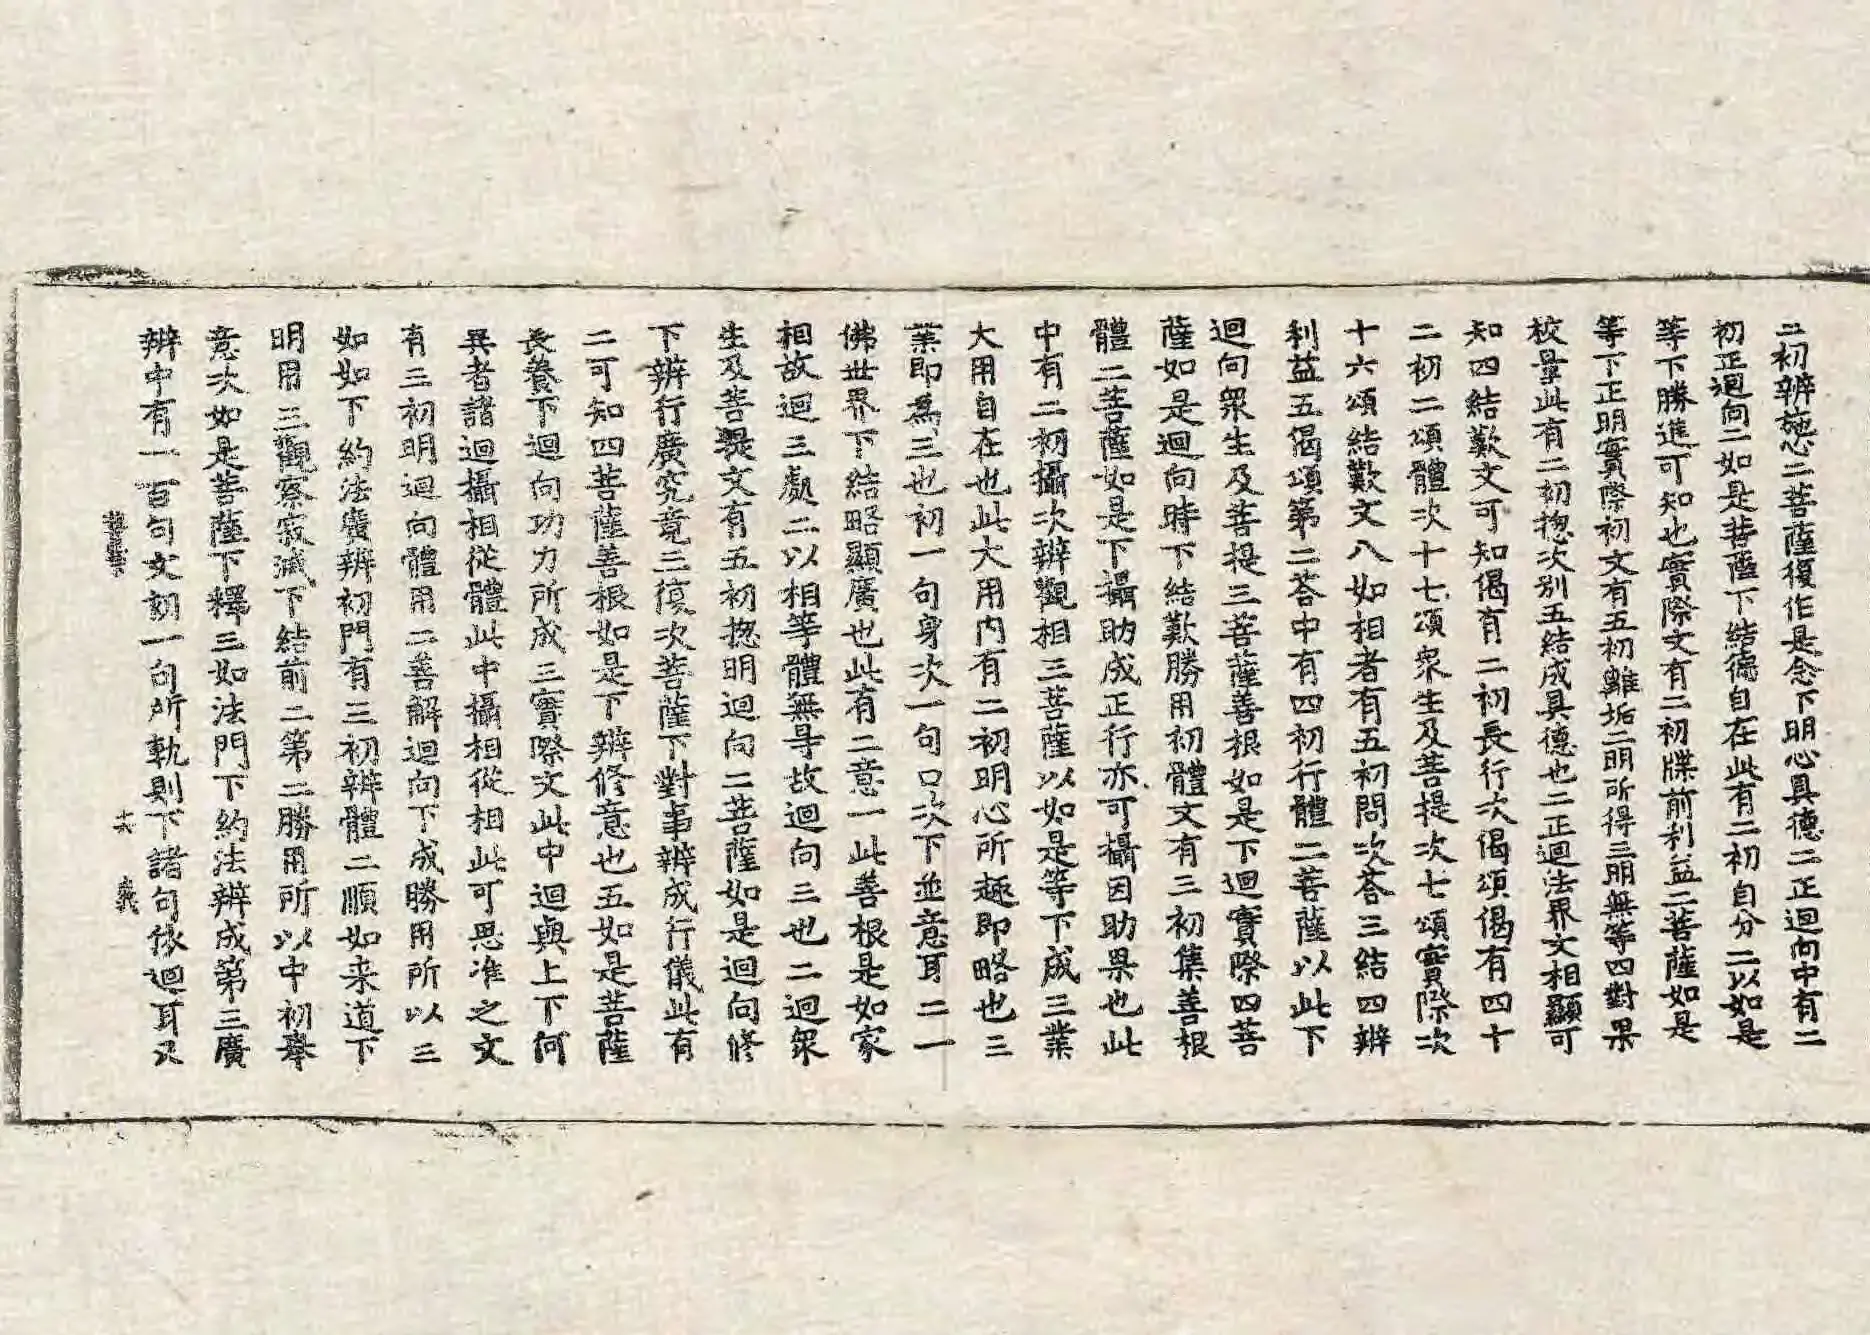 二初辨施心二菩薩復作是念下明心具德二正迴向中有二
初正迴向二如是菩薩下結德自在此有二初自分二以如是
等下勝進可知也實際文有二初牒前利益二菩薩如是
等下正明實際初文有五初離垢二明所得三明無等四對果
校量此有二初揔次別五結成具德也二正迴法界文相顯可
知四結歎文可知偈有二初長行次偈頌偈有四十
二初二頌體次十七頌衆生及菩提次七頌實際次
十六頌結歎文八如相者有五初問次荅三結四辨
利益五偈頌第二荅中有四初行體二菩薩以此下
迴向衆生及菩提三菩薩善根如是下迴實際四菩
薩如是迴向時下結歎勝用初體文有三初集善根
體二菩薩如是下攝助成正行亦可攝因助果也此
中有二初攝次辨觀相三菩薩以如是等下成三業
大用自在也此大用内有二初明心所趣即略也三
業即爲三也初一句身次一句口次下並意耳二一
佛世界下結略顯廣也此有二意一此善根是如家
相故迴三處二以相等體無㝵故迴向三也二迴衆
生及菩提文有五初揔明迴向二菩薩如是迴向修
下辨行廣究竟三復次菩薩下對事辨成行儀此有
二可知四菩薩善根如是下辨修意也五如是菩薩
長養下迴向功力所成三實際文此中迴與上下何
異者諸迴攝相從體此中攝相從相此可思准之文
有三初明迴向體用二善解迴向下成勝用所以三
如如下約法廣辨初門有三初辨體二順如来道下
明用三觀察寂滅下結前二第二勝用所以中初舉
意次如是菩薩下釋三如法門下約法辨成第三廣
辨中有一百句文初一句所軌則下諸句依迴耳又
十六